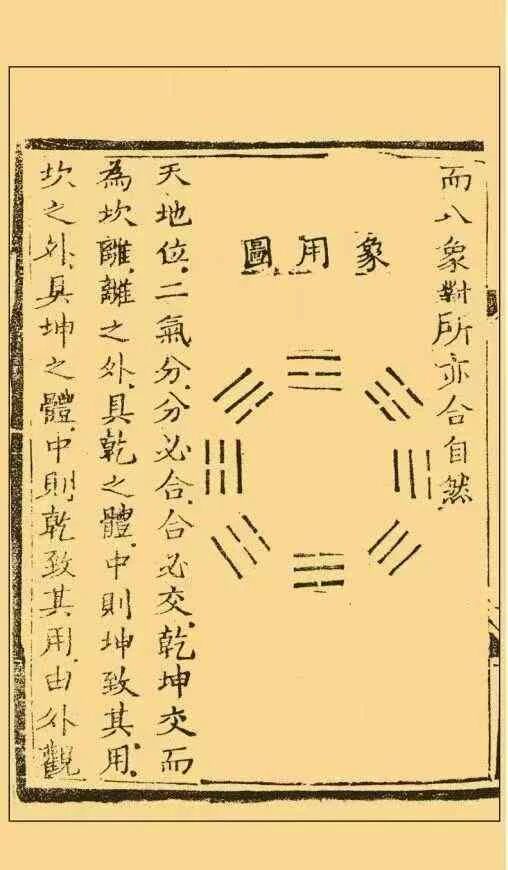 而八象對所亦合自然
象用圖
天地位二氣分分必合合必交乾坤交而
為坎離離之外具乾之體中則坤致其用
坎之外具坤之體中則乾致其用由外觀